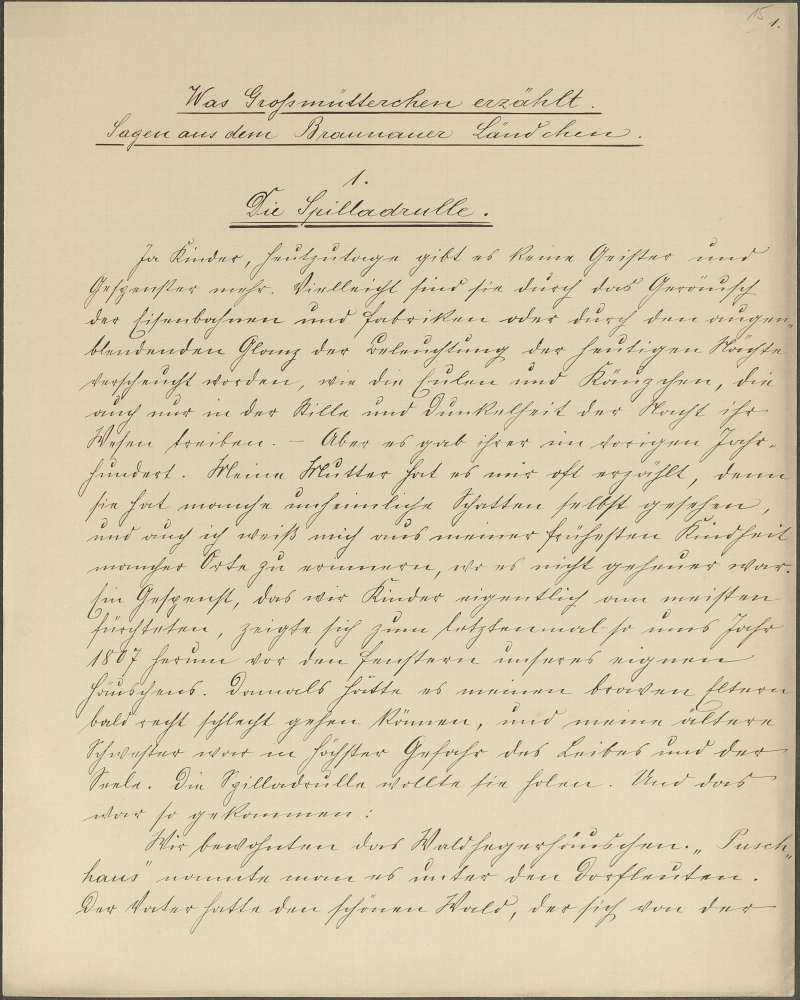 15
1.
Was Großmütterchen erzählt.
Sagen aus dem Braunauer Ländchen.
1.
Die Spilladrulle.
Ja Kinder, heutzutage gibt es keine Geister und
Gespenster mehr. Vielleicht sind sie durch das Geräusch
der Eisenbahnen und Fabriken oder durch den augen-
blendenden Glanz der Beleuchtung der heutigen Nächte
verscheucht worden, wie die Eulen und Käuzchen, die
auch nur in der Stille und Dunkelheit der Nacht ihr
Wesen treiben. – Aber es gab ihrer im vorigen Jahr-
hundert. Meine Mutter hat es mir oft erzählt, denn
sie hat manche unheimliche Schatten selbst gesehen,
und auch ich weiß mich aus meiner frühesten Kindheit
mancher Orte zu erinnern, wo es nicht geheuer war.
Ein Gespenst, das wir Kinder eigentlich am meisten
fürchteten, zeigte sich zum letztenmal so ums Jahr
1807 herum vor den Fenstern unseres eignen
Häuschens. Damals hätte es meinen braven Eltern
bald recht schlecht gehen können, und meine ältere
Schwester war in höchster Gefahr des Leibes und der
Seele. Die Spilladrulle wollte sie holen. Und das
war so gekommen:
Wir bewohnten das Waldhegerhäuschen. „Pusch-
haus" nannte man es unter den Dorfleuten.
Der Vater hatte den schönen Wald, der sich von der